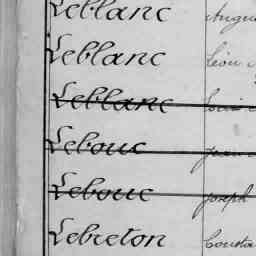 Leblanc Augus
Leblanc Léon
Leblanc Louis
Lebouc Jean
Lebouc Joseph
Lebreton Consta